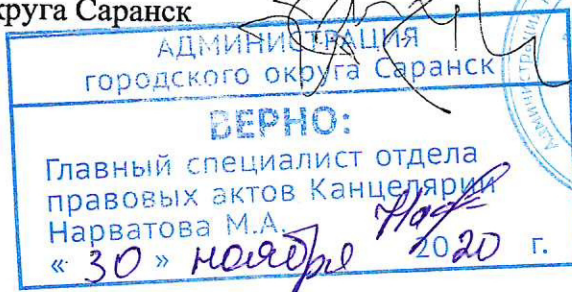 круга Саранск
АДМИНИСТРАЦИЯ
городского округа Саранск
ВЕРНО:
Главный специалист отдела
правовых актов Канцелярии
Нарватова М.А.
« 30 » ноября 2020 г.